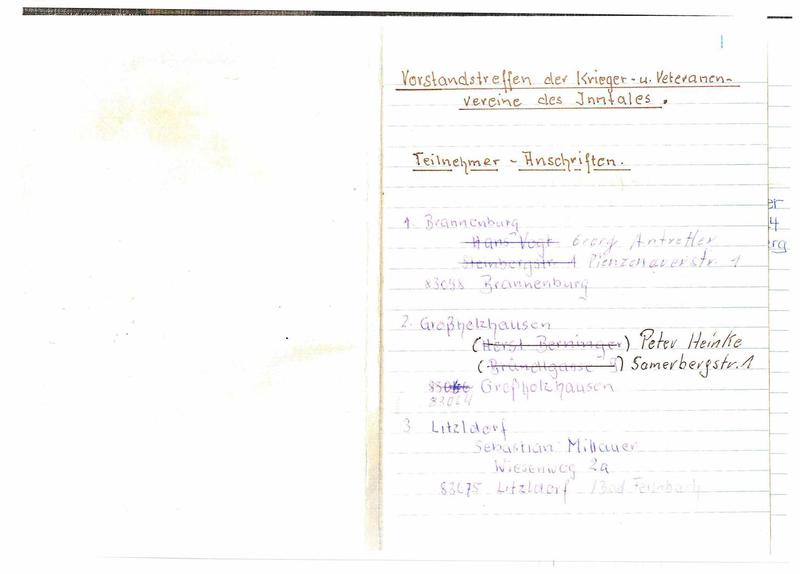 1
Vorstandstreffen der Krieger- u. Veteranen-
vereine des Inntales.
Teilnehmer - Anschriften.
1. Brannenburg
Hans Vogt Georg Antretter
Steinbergstr. 1 Pienzenauerstr. 1
83098 Brannenburg
2. Großholzhausen
(Horst Berninger) Peter Heinke
(Bründlgasse 9) Samerbergstr. 1
Großholzhausen
83064
3. Litzldorf
Sebastian Millauer
Wiesenweg 2a
83075 Litzldorf / Bad Feilnbach
er
4
rg